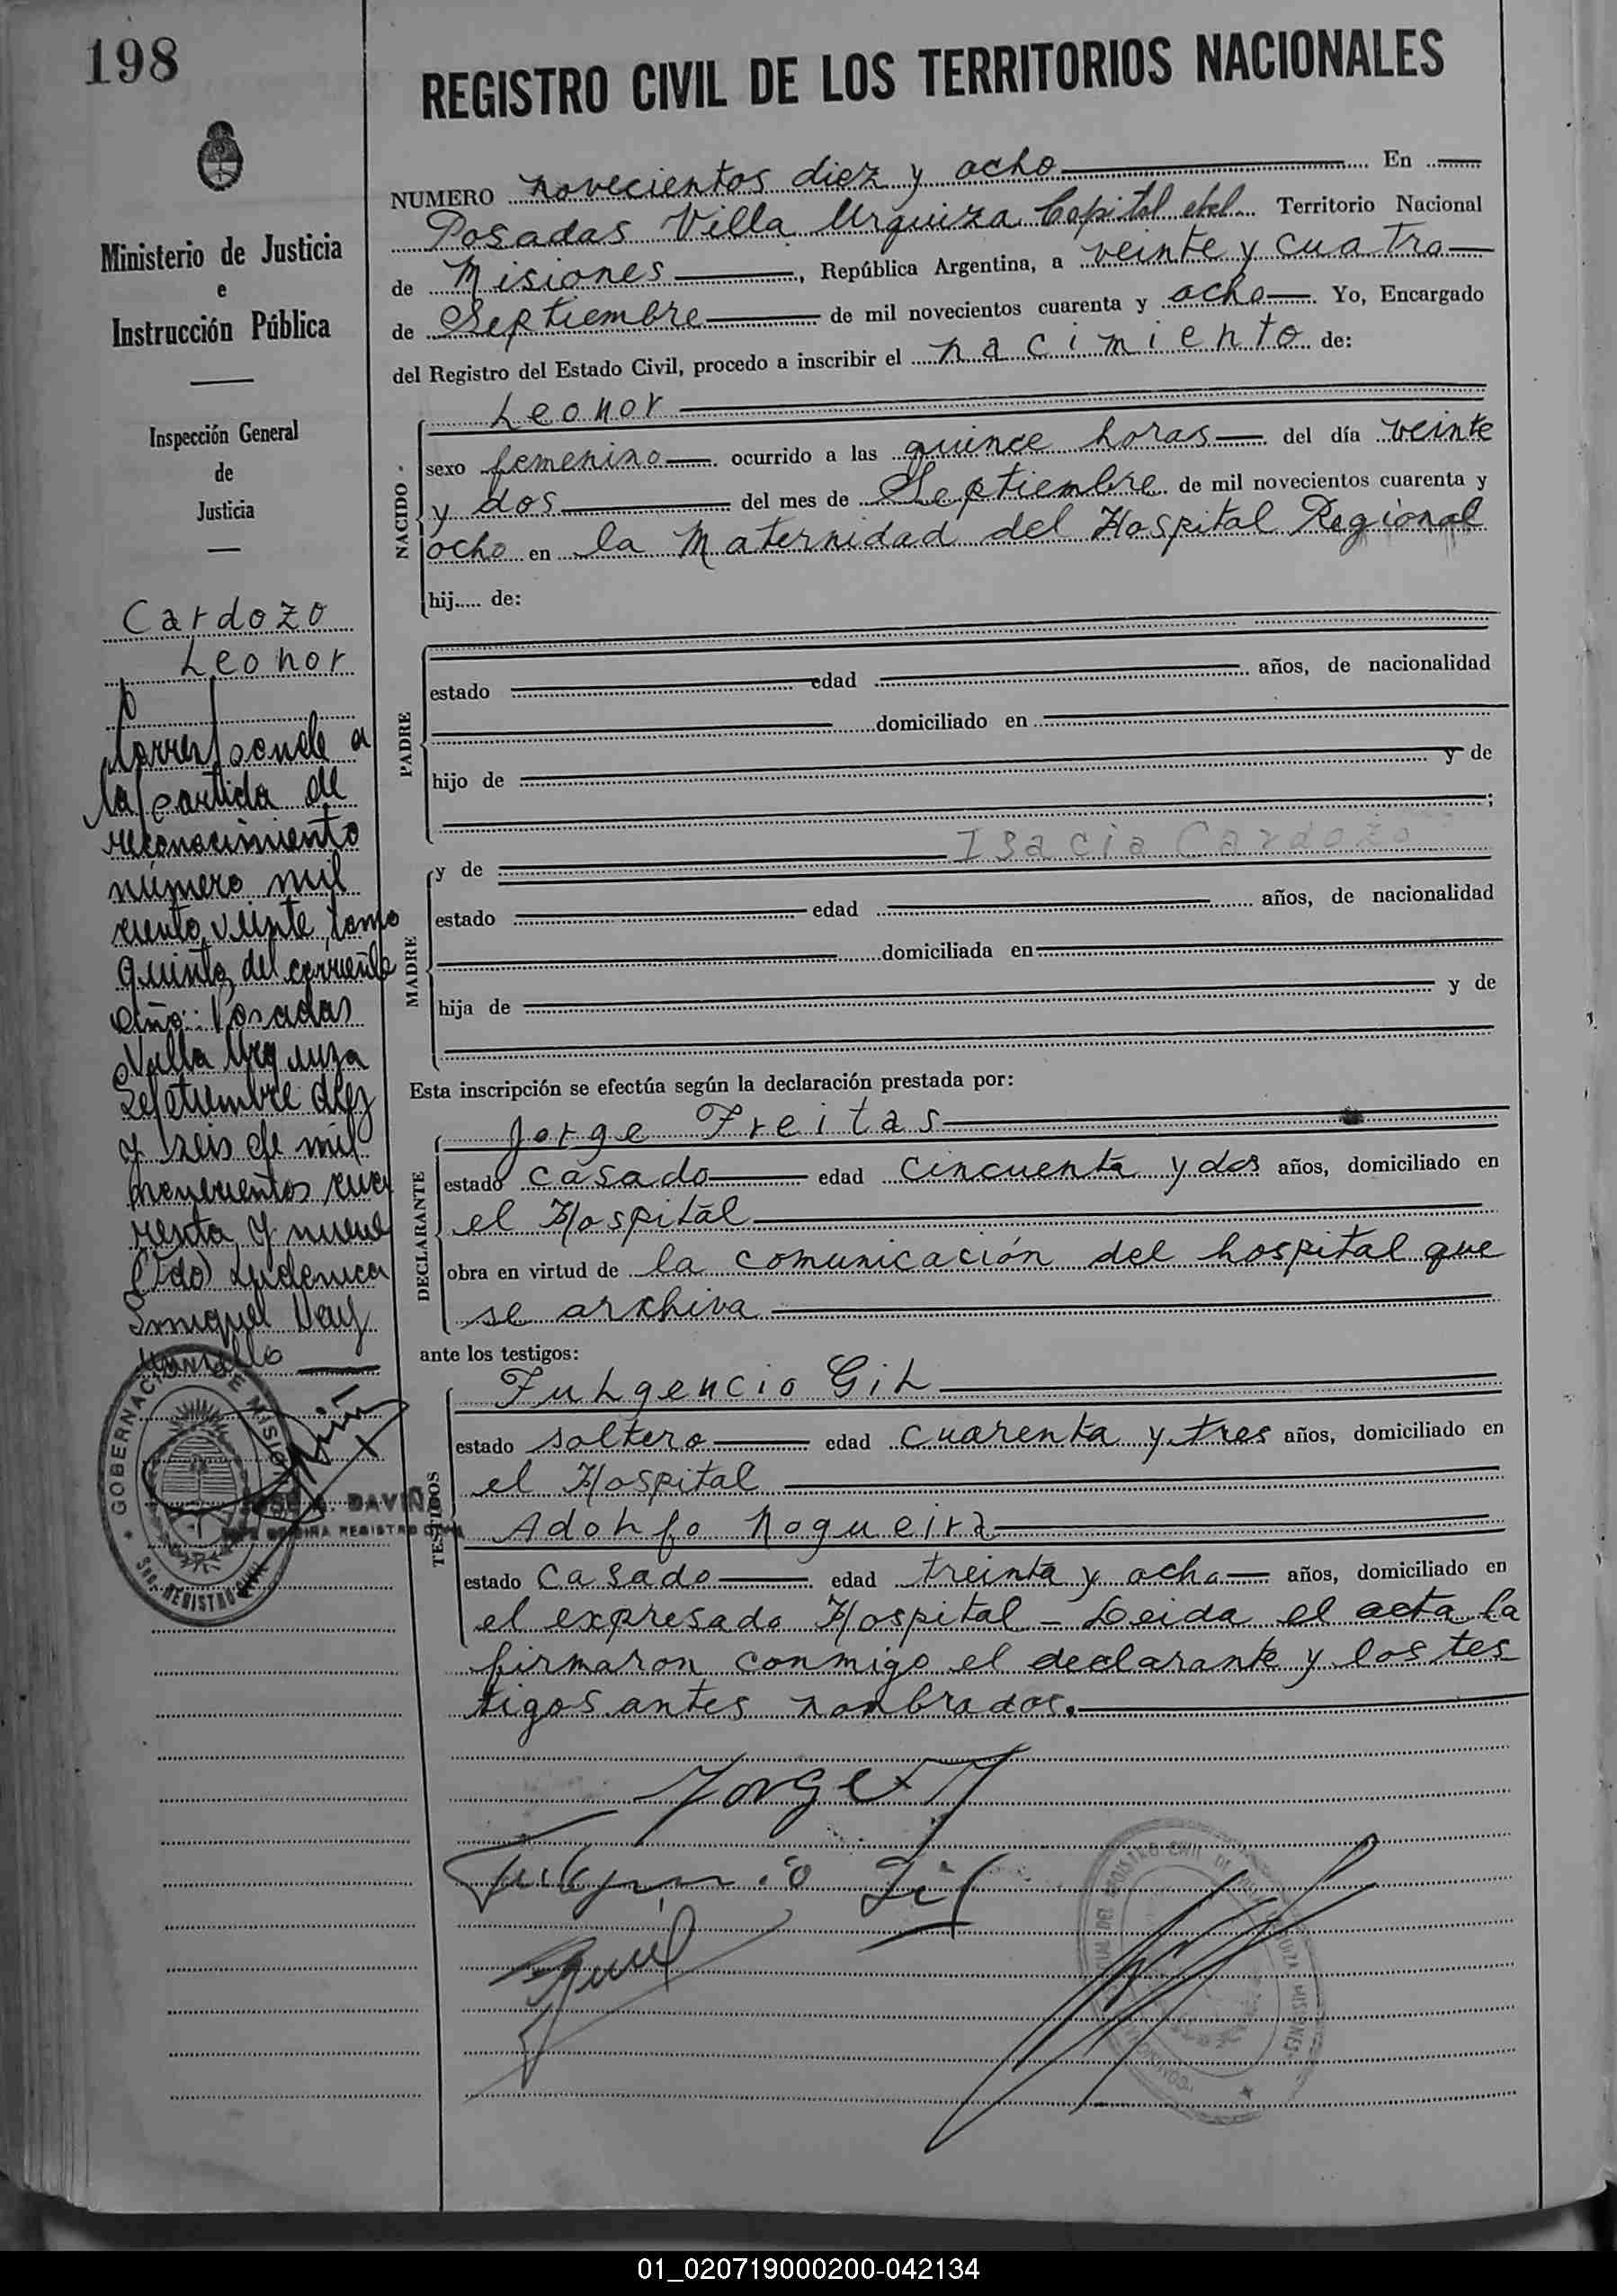 198
REGISTRO CIVIL DE LOS TERRITORIOS NACIONALES
Ministerio de Justicia
e
Instrucción Pública
Inspección General
de
Justicia
Cardozo
Leonor
Corresponde a
la partida de
reconocimiento
número mil
ciento veinte tomo
quinto del corriente
año: Posadas
Villa Urquiza
Setiembre diez
y seis de mil
novecientos cua
renta y nueve
(Fdo)
GOBERNACION DE MISIONES
DAVIÑA
REGISTRO CIVIL
NUMERO novecientos diez y ocho En
Posadas Villa Urquiza Capital del Territorio Nacional
de Misiones, República Argentina, a veinte y cuatro
de Septiembre de mil novecientos cuarenta y ocho. Yo, Encargado
del Registro del Estado Civil, procedo a inscribir el nacimiento de:
NACIDO
Leonor
sexo femenino ocurrido a las quince horas del día veinte
y dos del mes de Septiembre de mil novecientos cuarenta y
ocho en la Maternidad del Hospital Regional
hij..... de:
PADRE
estado edad años, de nacionalidad
domiciliado en
hijo de y de
;
MADRE
y de Isacia Cardozo
estado edad años, de nacionalidad
domiciliada en
hija de y de
Esta inscripción se efectúa según la declaración prestada por:
DECLARANTE
Jorge Freitas
estado casado edad cincuenta y dos años, domiciliado en
el Hospital
obra en virtud de la comunicación del hospital que
se archiva
ante los testigos:
TESTIGOS
Fulgencio Gil
estado soltero edad cuarenta y tres años, domiciliado en
el Hospital
Adolfo Nogueira
estado Casado edad treinta y ocho años, domiciliado en
el expresado Hospital - Leida el acta la
firmaron conmigo el declarante y los tes
tigos antes nombrados.
Jorge
Fulgencio Gil
01_020719000200-042134